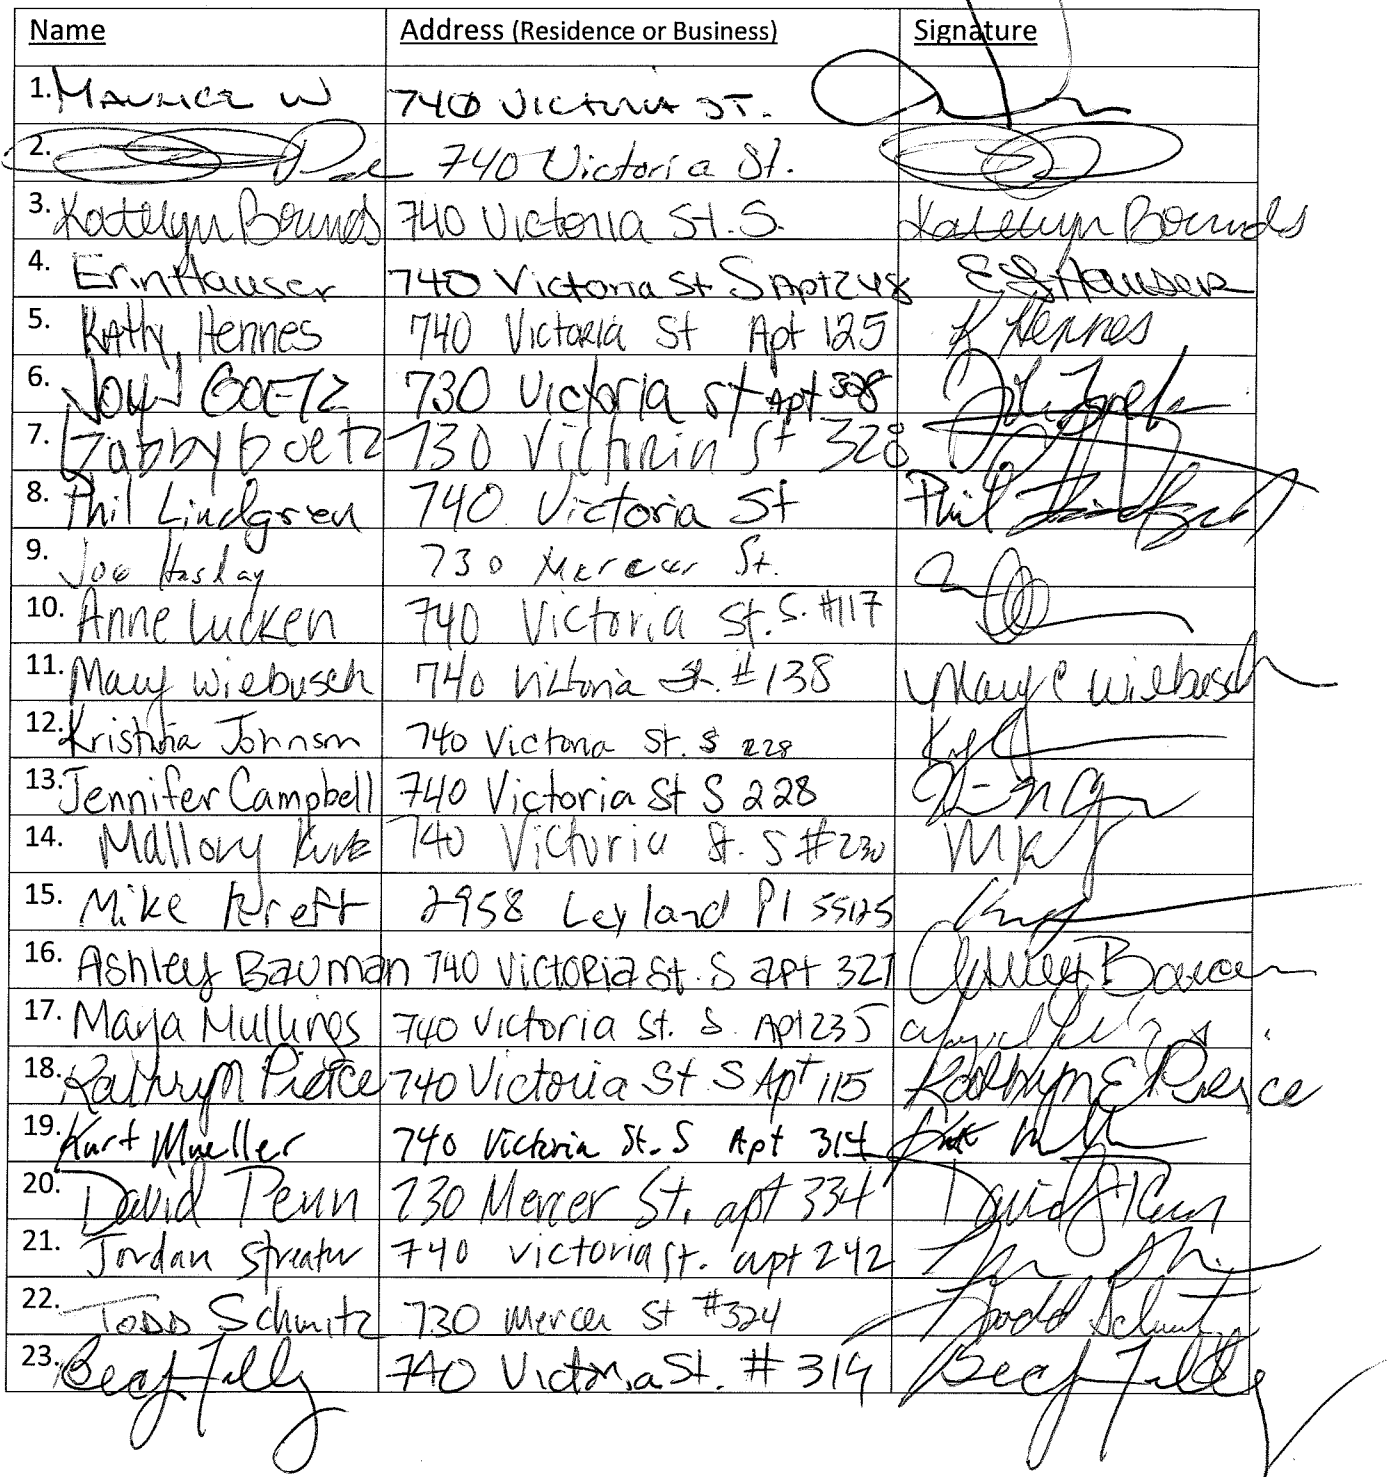 Name Address (Residence or Business) Signature
1. Maurice W 740 Victoria St.
2. 740 Victoria St.
3. Katelyn Bounds 740 Victoria St. S. Katelyn Bounds
4. Erin Hauser 740 Victoria St S Apt 248 E Hauser
5. Kathy Hennes 740 Victoria St Apt 125 K Hennes
6. John Goetz 730 Victoria St Apt 328
7. Gabby Goetz 730 Victoria St 328
8. Phil Lindgren 740 Victoria St Phil Lindgren
9. Joe 730 Mercer St.
10. Anne Lucken 740 Victoria St. S. #117
11. Mary Wiebusch 740 Victoria St. #138 Mary C Wiebusch
12. Kristina Johnson 740 Victoria St. S 228
13. Jennifer Campbell 740 Victoria St S 228
14. Mallory 740 Victoria St. S #230
15. Mike Kreft 2958 Leyland Pl 55125
16. Ashley Bauman 740 Victoria St. S apt 327 Ashley Bauman
17. Maya Mullings 740 Victoria St. S. Apt 235
18. Kathryn Pierce 740 Victoria St S Apt 115 Kathryn E Pierce
19. Kurt Mueller 740 Victoria St. S Apt 314
20. David Penn 730 Mercer St. apt 334 David J Penn
21. Jordan Streater 740 Victoria St. apt 242
22. Todd Schmitz 730 Mercer St #324 Todd Schmitz
23. 740 Victoria St. # 314